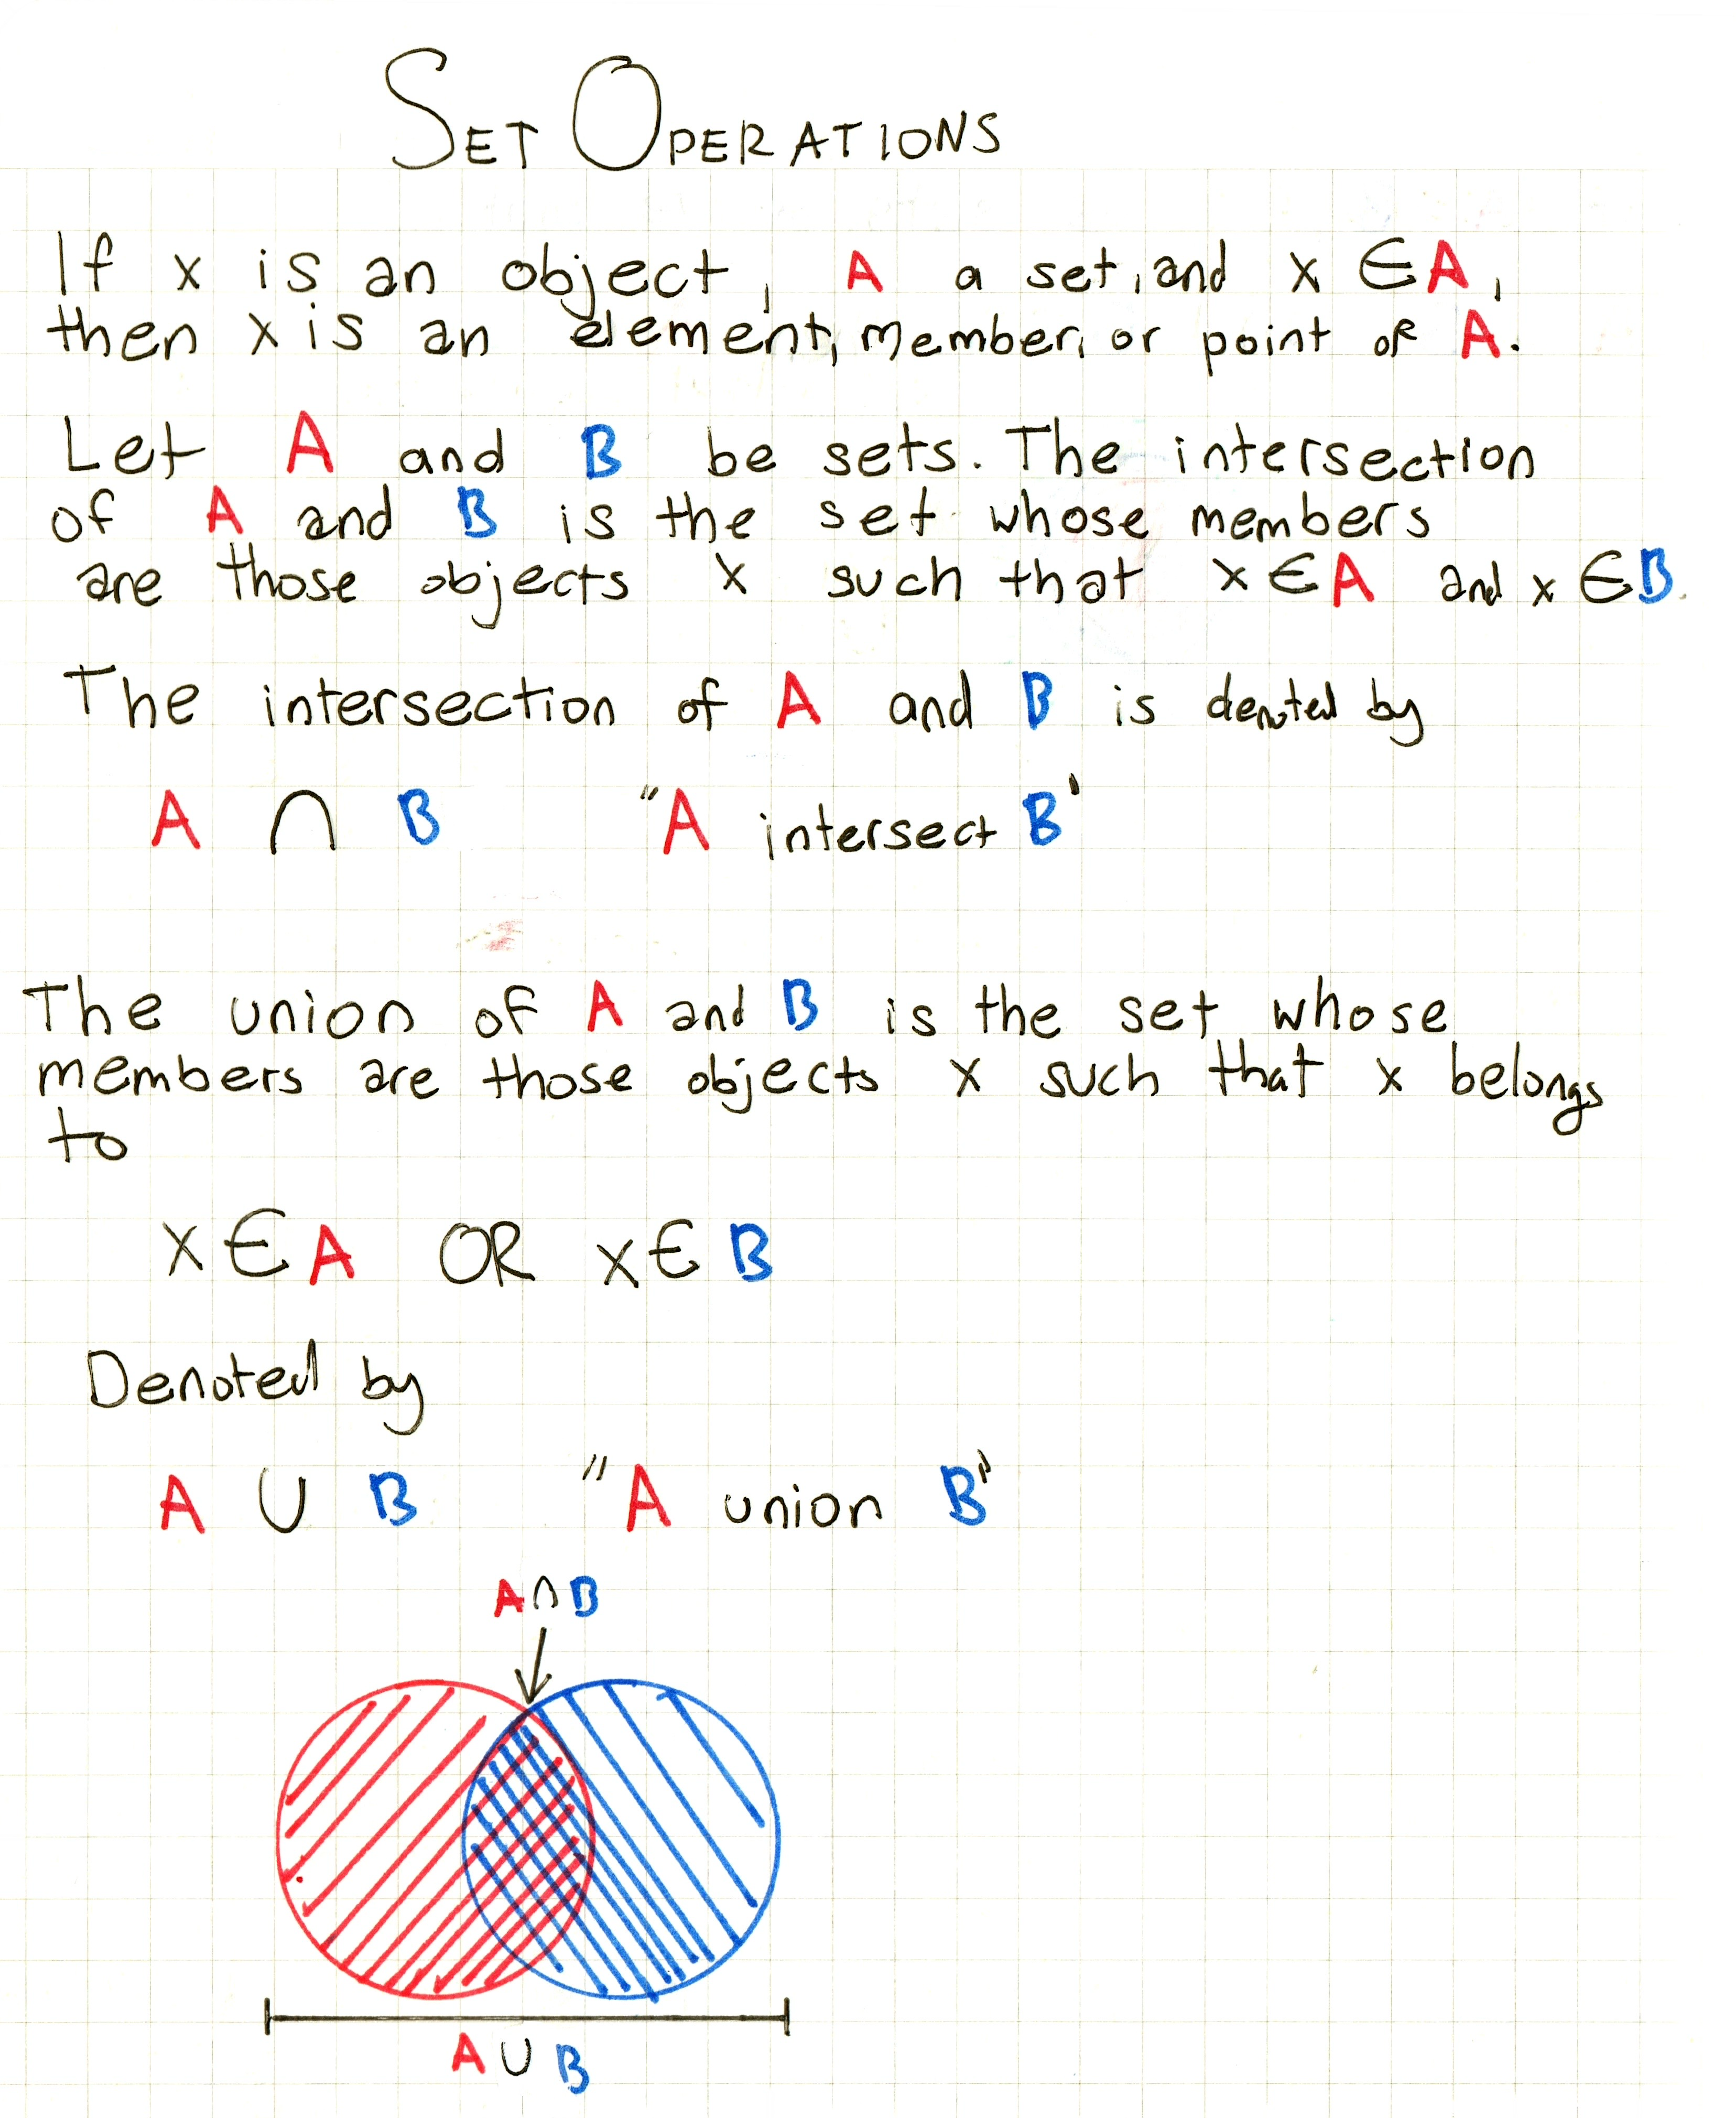 SET OPERATIONS
If x is an object, A a set, and x ∈ A,
then x is an element, member, or point of A.
Let A and B be sets. The intersection
of A and B is the set whose members
are those objects x such that x ∈ A and x ∈ B.
The intersection of A and B is denoted by
A ∩ B "A intersect B'
The union of A and B is the set whose
members are those objects x such that x belongs
to
x ∈ A OR x ∈ B
Denoted by
A ∪ B "A union B"
A ∩ B
A ∪ B